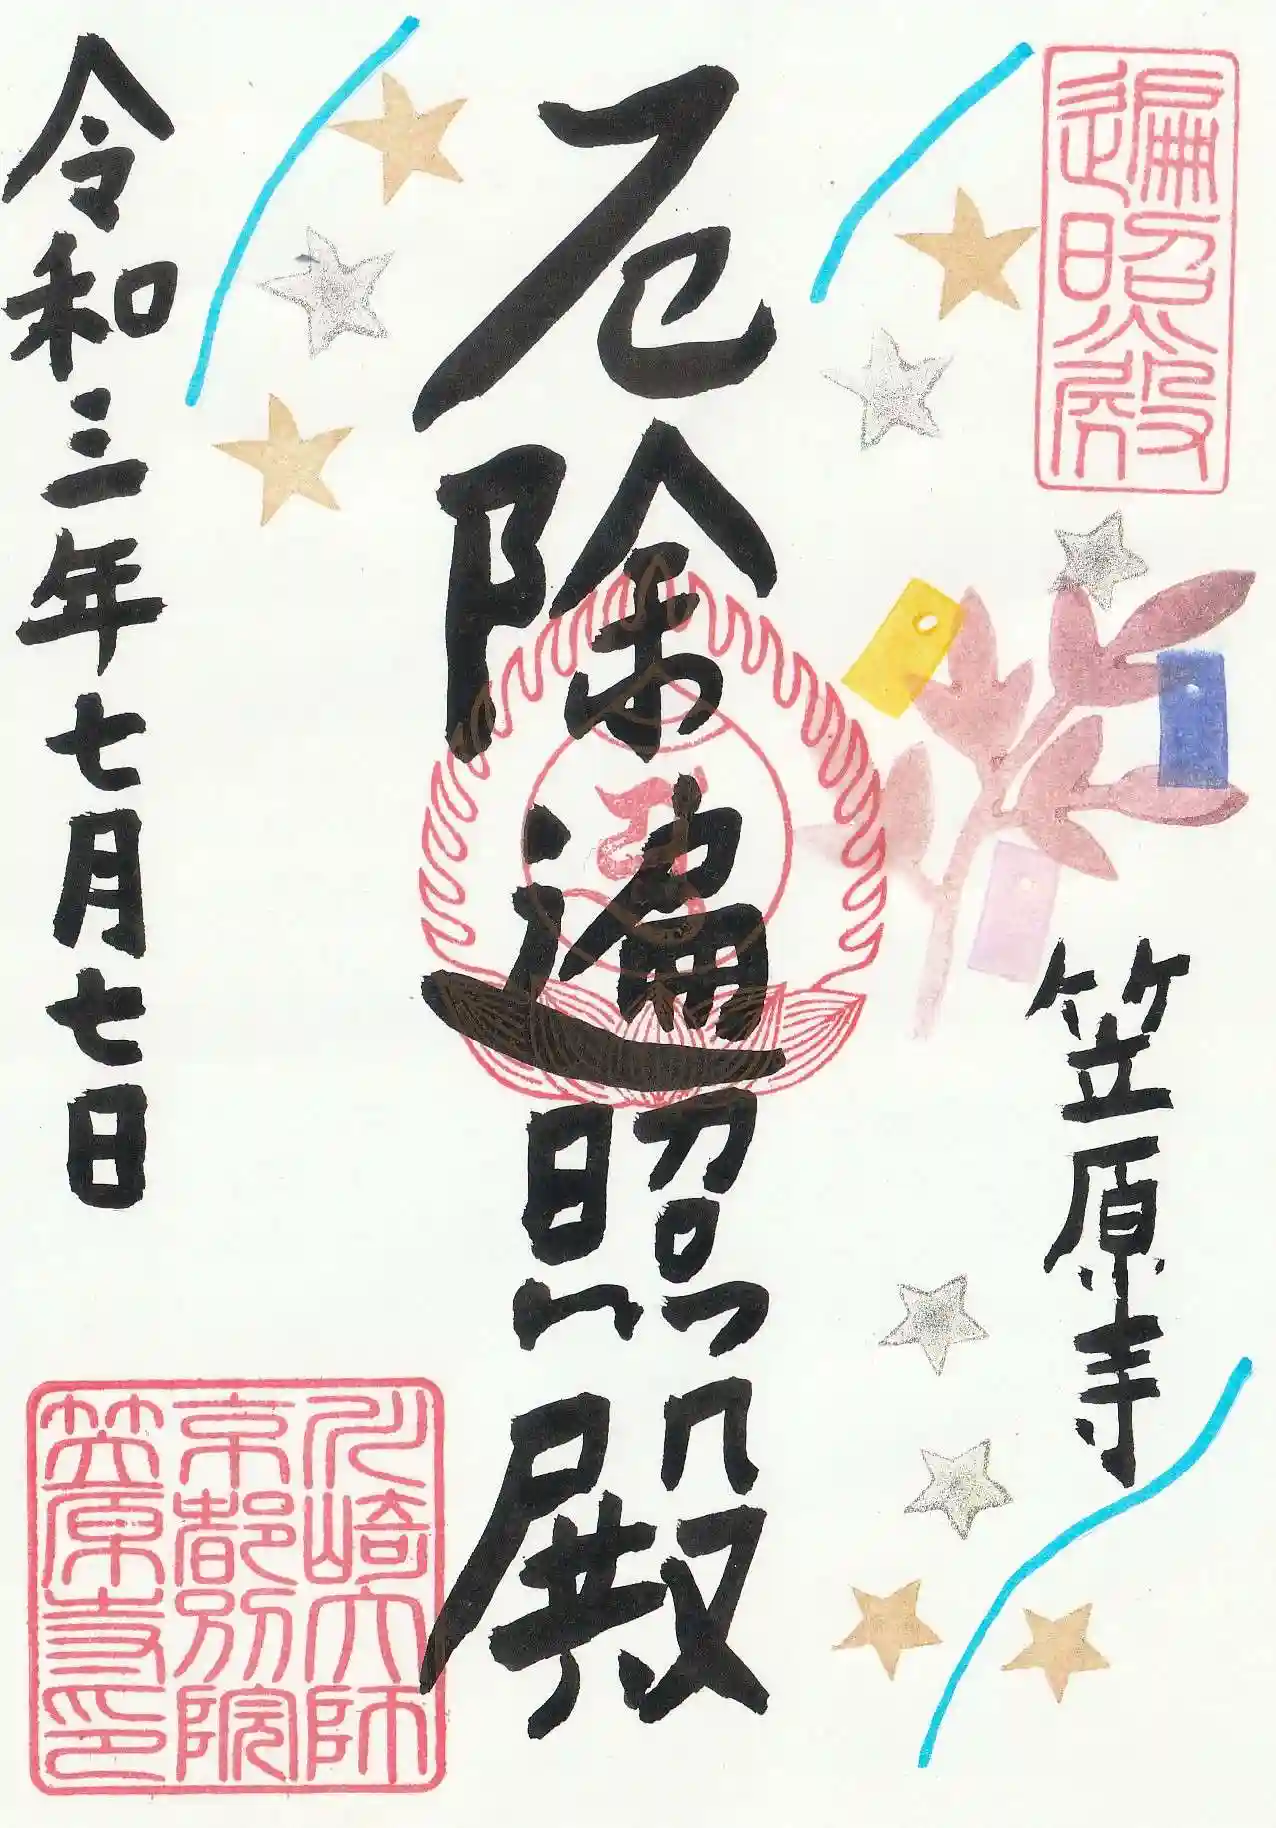 遍照殿
笠原寺
厄除遍照殿
令和三年七月七日
川崎大師
京都別院
笠原寺印